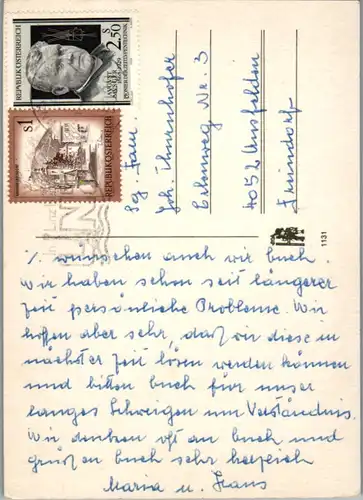 REPUBLIK ÖSTERREICH
S 2.50
S1
REPUBLIK ÖSTERREICH
Sg. Fam.
Joh. Thurnhofer
Nr. 3
4052 Ansfelden
Freindorf
1131
%. wünschen auch wir Euch.
Wir haben schon seit längerer
Zeit persönliche Probleme. Wir
hoffen aber sehr, daß wir diese in
nächster Zeit lösen werden können
und bitten Euch für unser
langes Schweigen um Verständnis.
Wir denken oft an Euch und
grüßen Euch sehr herzlich
Maria u. Hans